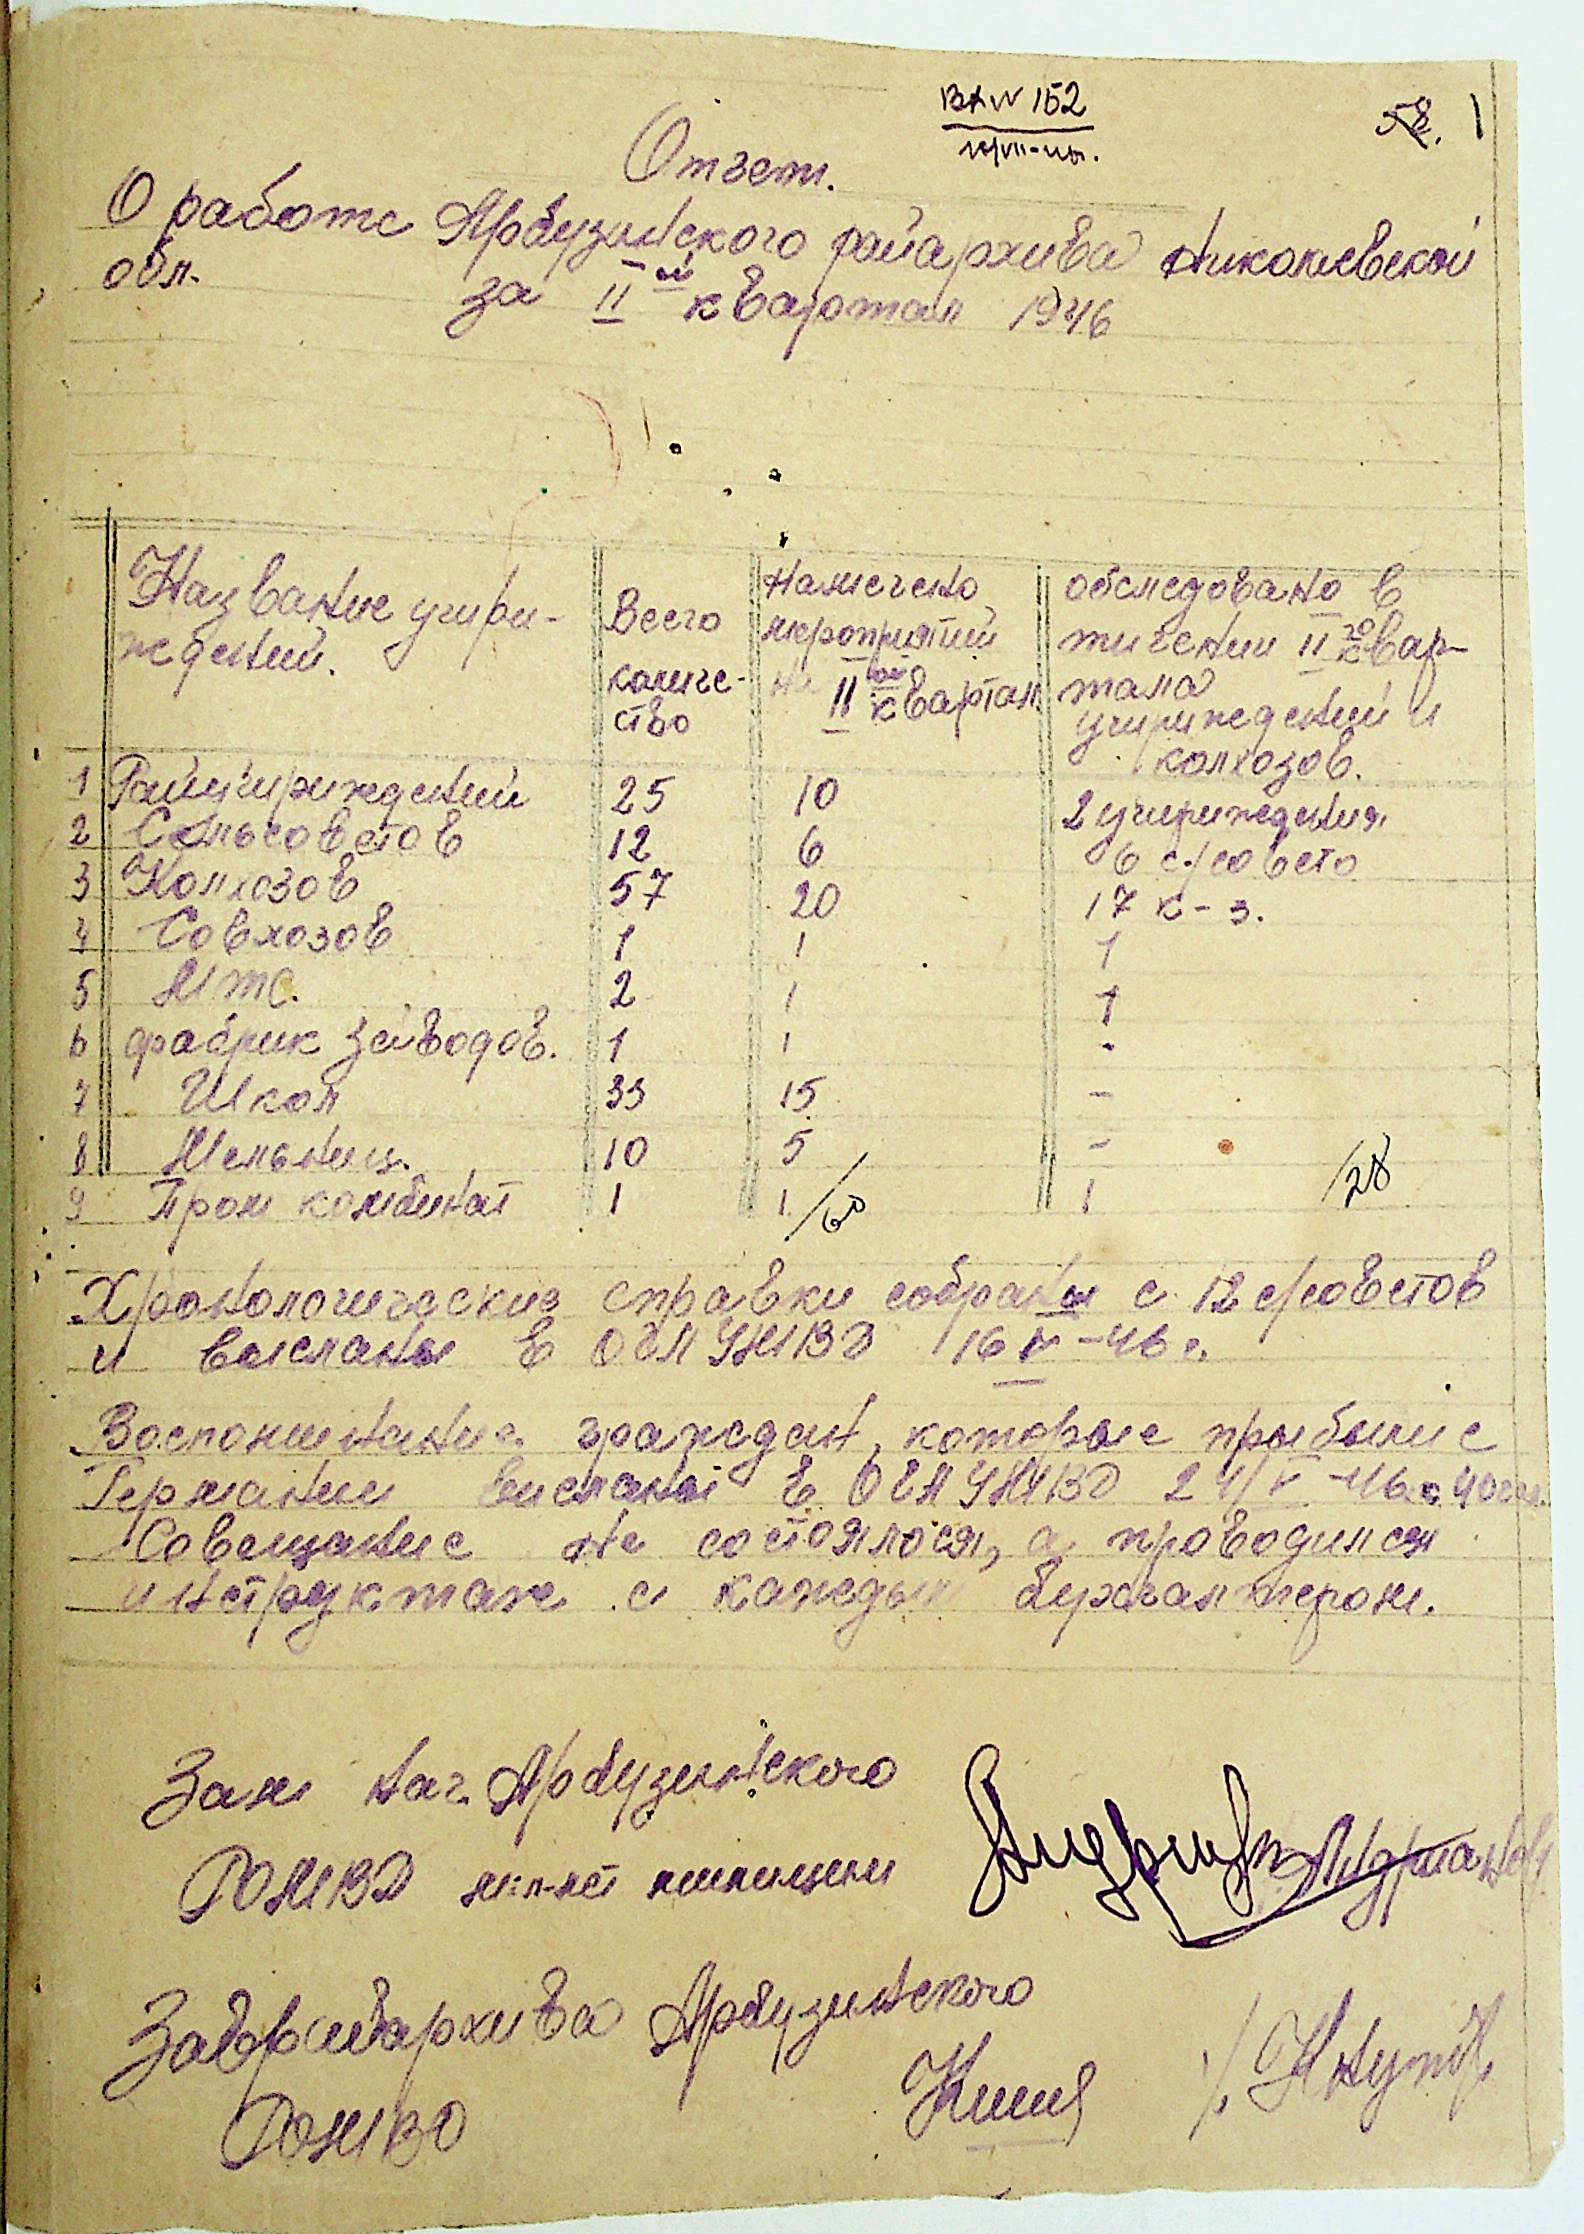 Вх № 152
Отчет.
О работе Арбузинского райархива Николаевской
обл.
за II ой квартал 1946
Название учири-
ждений.
Всего
количе-
ство
Намечено
мероприятий
на II ой квартал
обследовано в
тичении II го квар-
тала
учириждений и
колхозов.
1 Райучириждений 25 10 2 учириждения
2 Сельсоветов 12 6 6 с/совето
3 Колхозов 57 20 17 к-з.
4 Совхозов 1 1 1
5 МТС. 2 1 1
6 фабрик заводов. 1 1 -
7 Школ 33 15 -
8 Мельниц. 10 5 -
9 Пром комбинат 1 1 /60 1 /28
Хронологические справки собраны с 12 с/советов
и высланы в Обл УМВД 16 V-46 г.
Воспоминание граждан, которые прибыли с
Германии висланы в ОбЛ УМВД 24/V-46
Совещание не состоялося, а проводился
инструктаж с каждым бухгалтером.
Зам нач. Арбузинского
РОМВД милиции
Зав Арбузинского
РОМВД